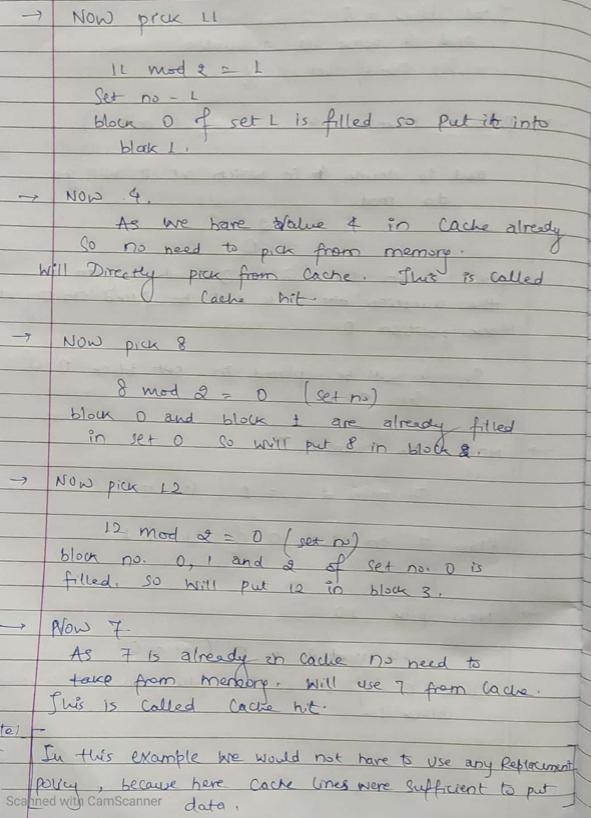 → Now pick 11
11 mod 2 = 1
Set no - 1
block 0 of set 1 is filled so put it into
block 1.
→ Now 4.
As we have value 4 in cache already
So no need to pick from memory.
Will Directly pick from cache. This is called
Cache hit.
→ Now pick 8
8 mod 2 = 0 (set no)
block 0 and block 1 are already filled
in set 0 so will put 8 in block 2.
→ Now pick 12
12 mod 2 = 0 (set no)
block no. 0, 1 and 2 of set no. 0 is
filled. so will put 12 in block 3.
→ Now 7.
As 7 is already in cache no need to
take from memory. Will use 7 from cache.
This is called cache hit.
te) -
[In this example we would not have to use any Replacement
policy, because here cache lines were sufficient to put
data.]
Scanned with CamScanner